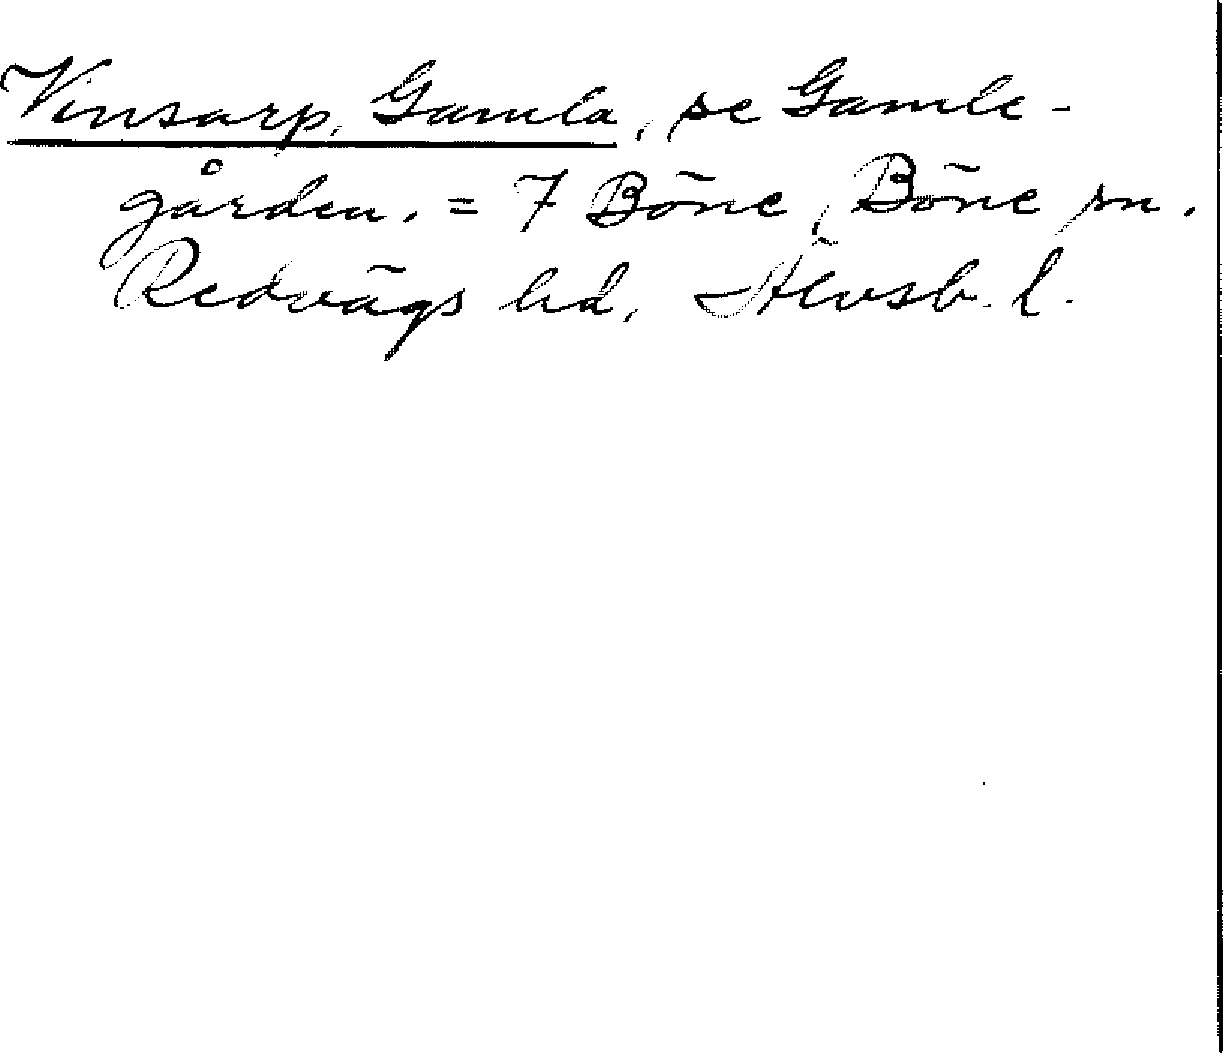 Vinsarp, Gamla, se Gamle-
gården. = 7 Böne, Böne sn.
Redvägs hd, Älvsb. l.